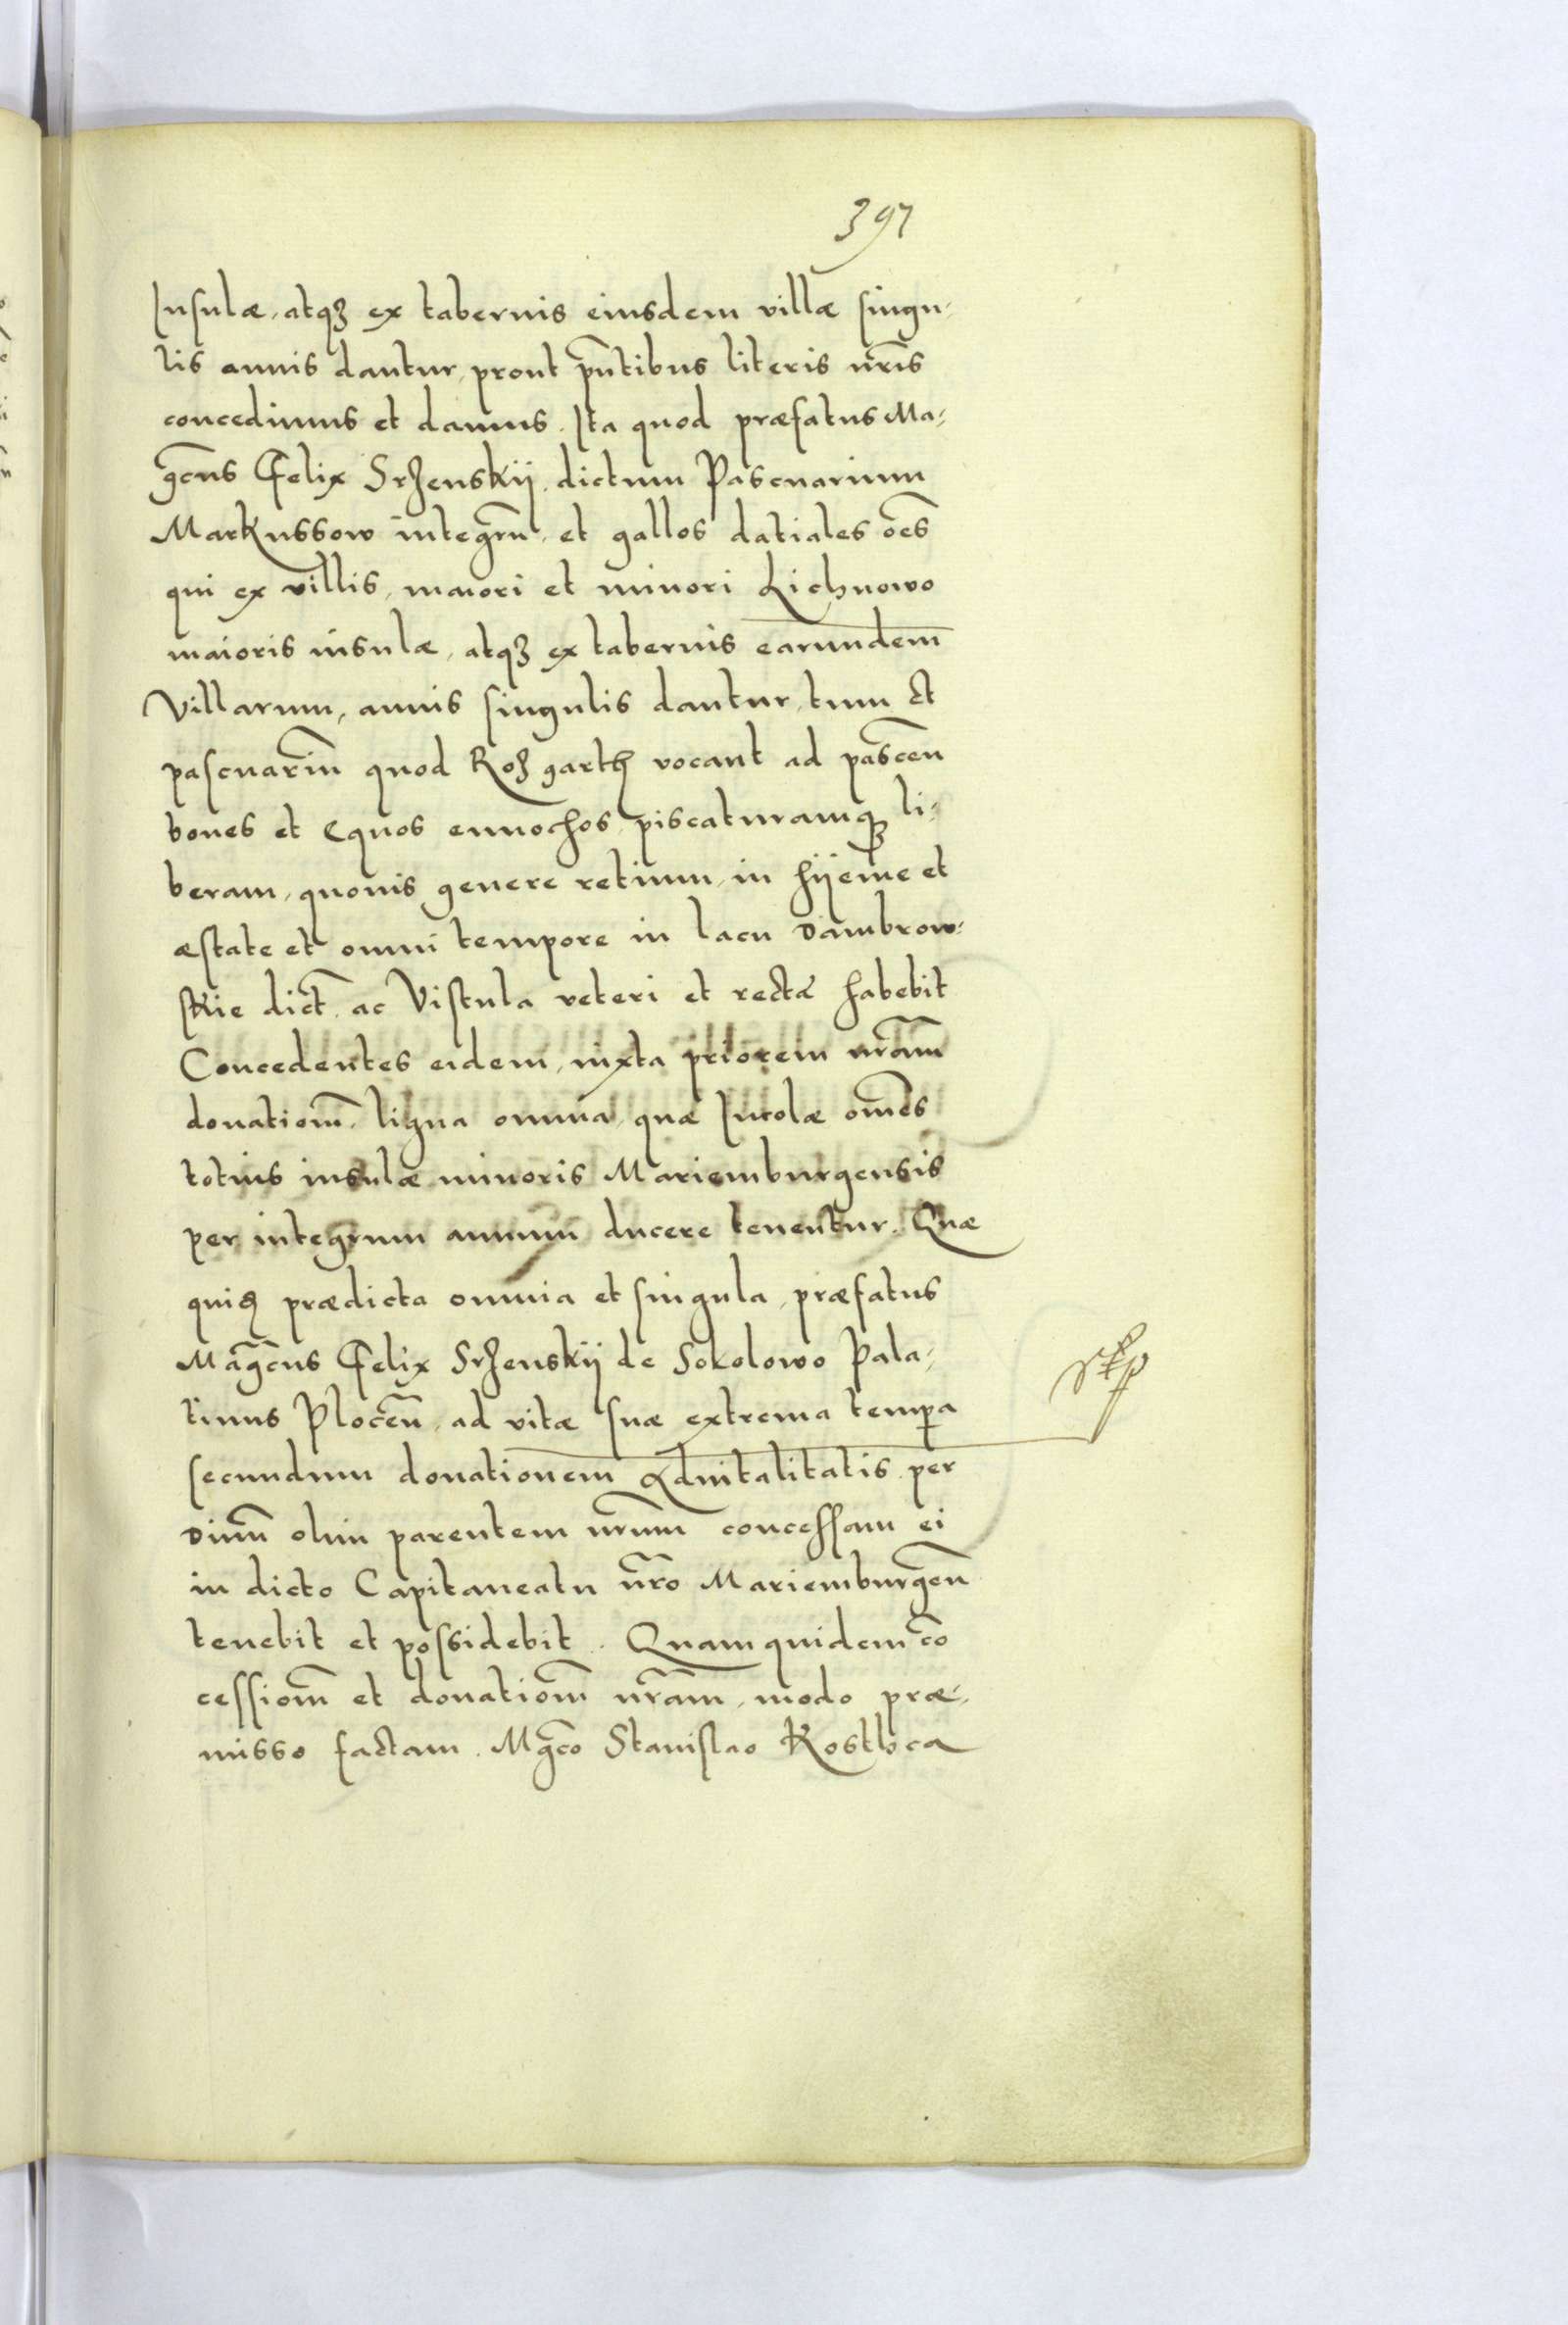 397
Insulæ, atqꝫ ex tabernis eiusdem villæ singu-
lis annis dantur, prout pn̄tibus literis nr̄is
concedimus et damus. Ita quod præfatus Ma-
gc̄us Felix Srzenskij, dictum Pascuarium
Markussow integrū, et gallos datiales oēs
qui ex villis, maiori et minori Lichnowo
maioris insulæ, atqꝫ ex tabernis earundem
Villarum, annis singulis dantur, tum et
pascuariū quod Roz garth vocant ad pascen̄
boues et Equos eunochos, piscaturamqꝫ li-
beram, quouis genere retium, in hijeme et
æstate et omni tempore in lacu Dambrow-
skie dict̄, ac Vistula veteri et recta habebit
Concedentes eidem, iuxta priorem nr̄am
donationē, ligna omnia, quæ Incolæ om̄es
totius insulæ minoris Mariemburgensis
per integrum annum ducere tenentur. Quæ
quidē prædicta omnia et singula, præfatus
Magc̄us Felix Srzenskij de Sokolowo Pala-
tinus Plocen̄, ad vitæ suæ extrema tempa
secundum donationem Aduitalitatis per
Diuū olim parentem nr̄um concessam ei
in dicto Capitaneatu nr̄o Mariemburgen̄
tenebit et possidebit. Quam quidem cō
cessionē et donationē nr̄am, modo præ-
misso factam. Mgc̄o Stanislao Kosthca